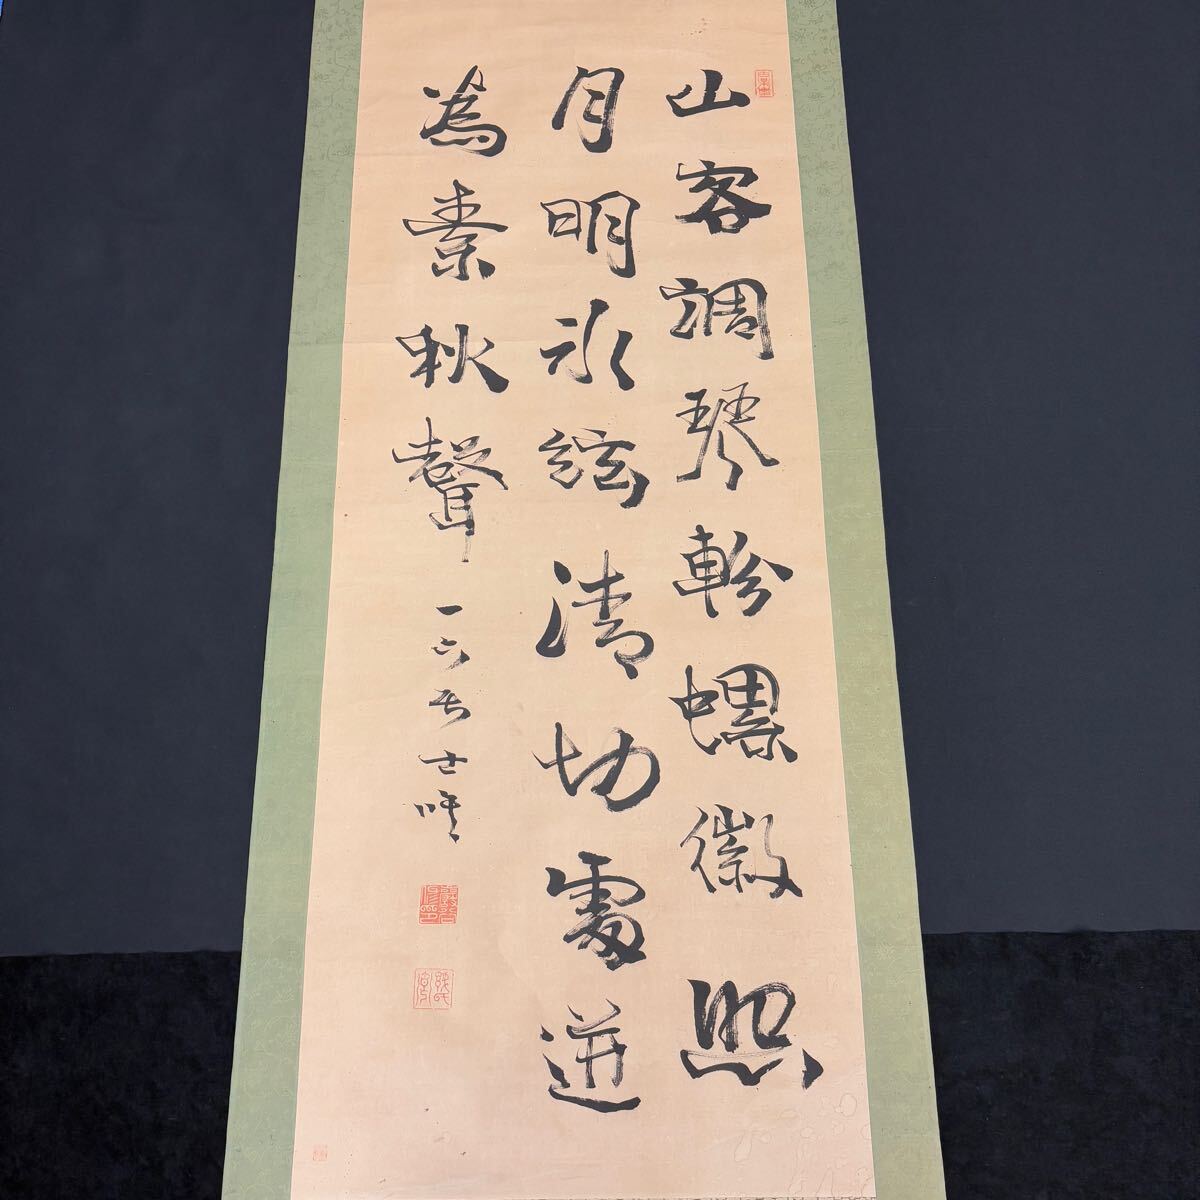 山客調琴軫螺徽照
月明氷絃清切處迸
為素秋聲 一六居士修